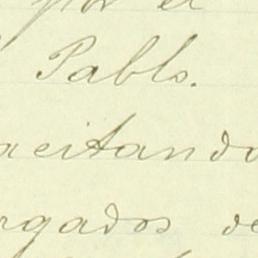 por el
Pablo.
acitando
rgados de